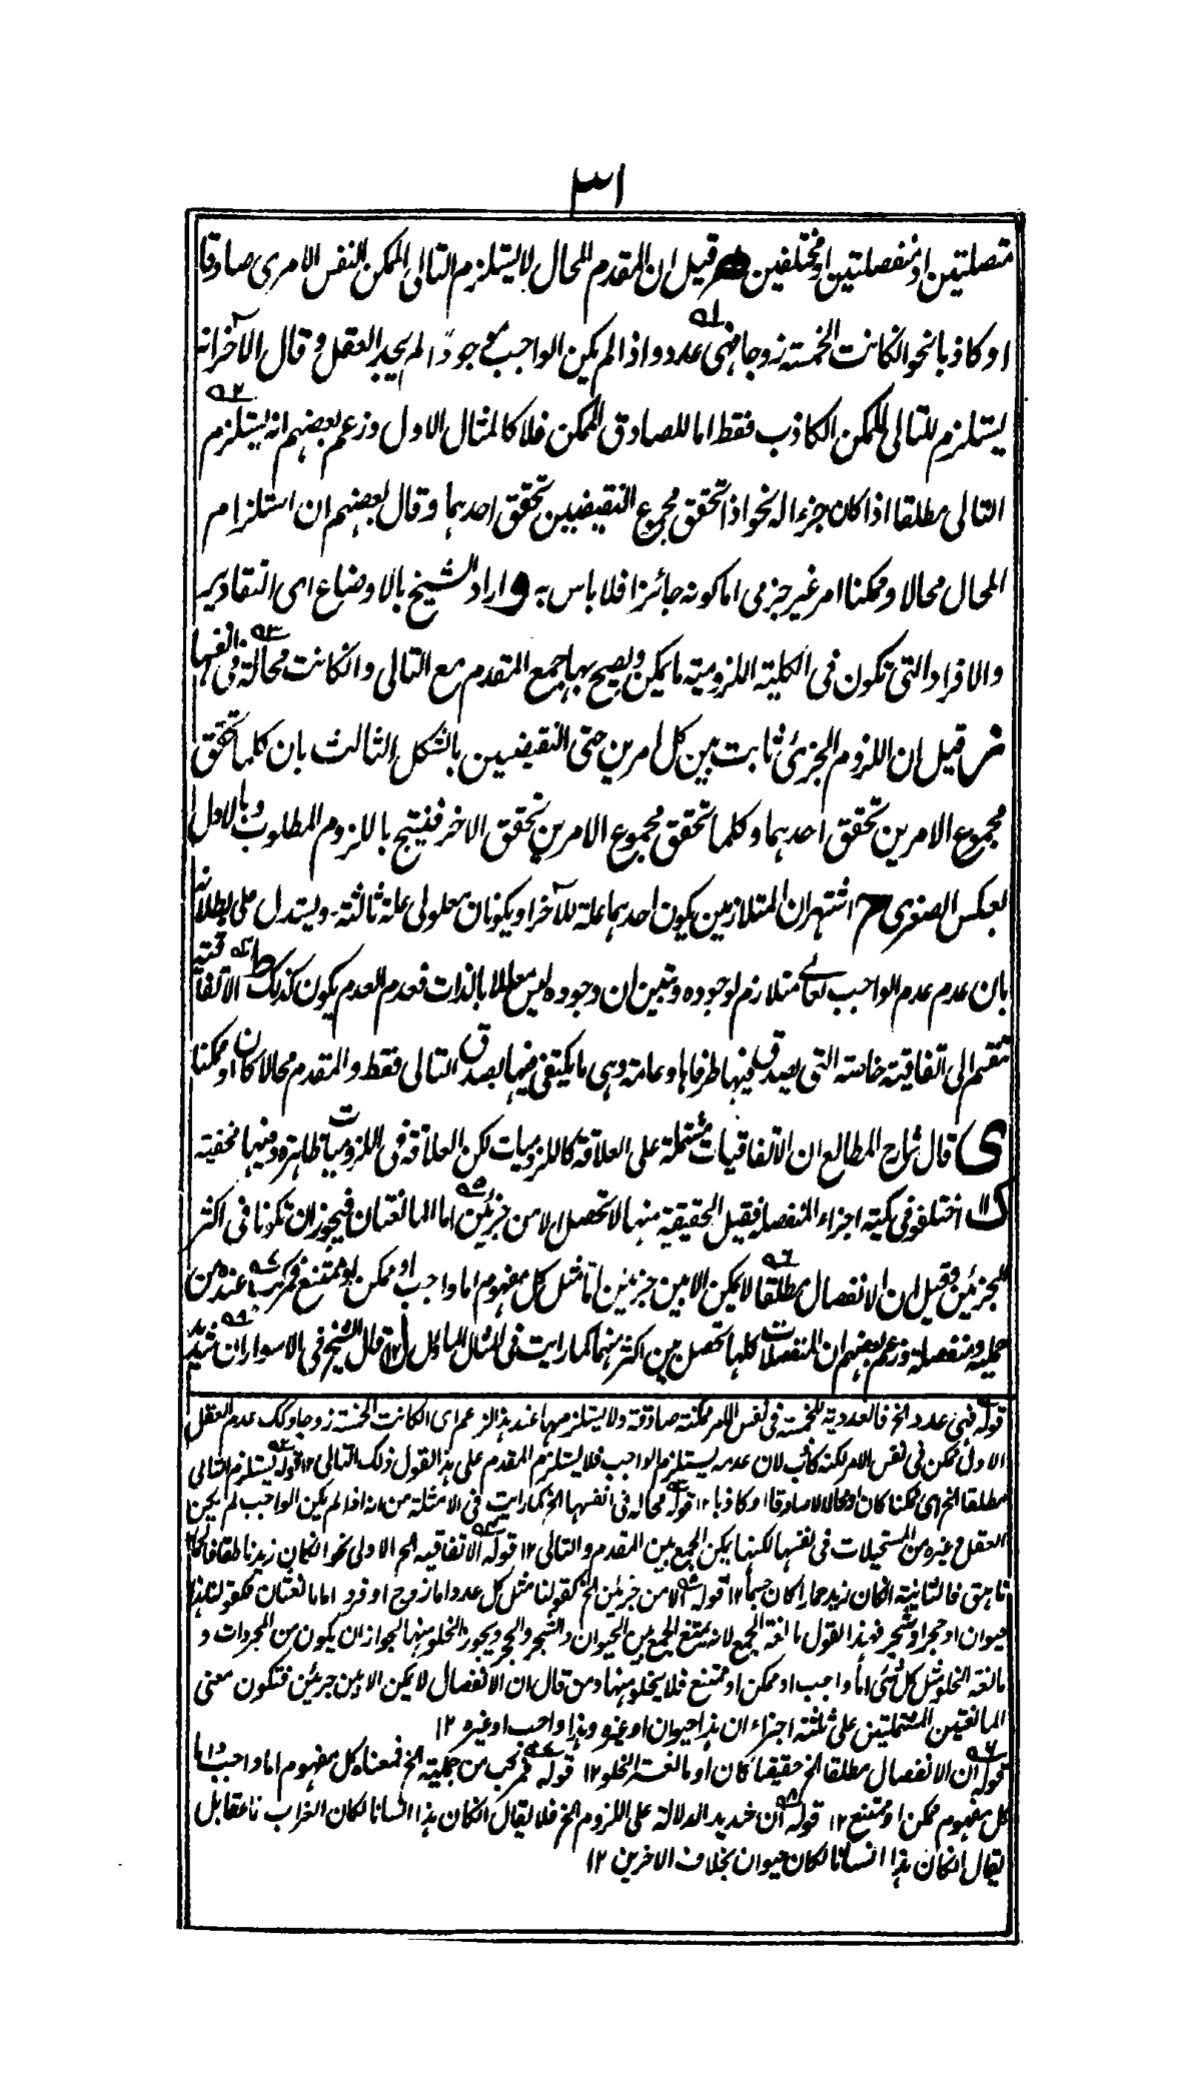 ٣١
متصلتين او منفصلتين او مختلفين قيل ان المقدم المحال لا يستلزم التالى الممكن النفس الامرى صادقا
او كاذبا نحو الكانت الخمسة زوجا فهى عدد و اذا لم يكن الواجب موجودا لم يجد العقل و قال الآخر انه
يستلزم للتالى الممكن الكاذب فقط اما للصادق الممكن فلا كالمثال الاول و زعم بعضهم انه يستلزم
التالى مطلقا اذا كان جزءا له نحو اذا تحقق مجموع النقيضين تحقق احدهما و قال بعضهم ان استلزام
المحال محالا و ممكنا امر غير جزمى اما كونه جائزا فلا باس به و اراد الشيخ بالاوضاع اى التقادير
و الافراد التى تكون فى الكلية اللزومية ما يمكن و يصح بها جمع المقدم مع التالى و انكانت محالة فى انفسها
قيل ان اللزوم الجزئى ثابت بين كل امرين حتى النقيضين بالشكل الثالث بان كلما تحقق
مجموع الامرين تحقق احدهما و كلما تحقق مجموع الامرين تحقق الاخر فينتج باللزوم المطلوب و بالاول
بعكس الصغرى ح اشتهر ان المتلازمين يكون احدهما علة للآخر او يكونان معلولى علة ثالثة و يستدل على بطلانه
بان عدم عدم الواجب تعالى متلازم لوجوده و تبين ان وجوده ليس معللا بالذات فعدم العدم يكون كذلك ط الاتفاقية
تنقسم الى اتفاقية خاصة التى يصدق فيها طرفاها و عامة و هى ما يكتفى فيها بصدق التالى فقط و المقدم محالا كان او ممكنا
ى قال شارح المطالع ان الاتفاقيات مشتملة على العلاقة كاللزوميات لكن العلاقة فى اللزوميات ظاهرة و فيها مخفية
اختلفو فى كمية اجزاء المنفصلة فقيل الحقيقية منها لا تحصل الا من جزئين اما المانعتان فيجوز ان تكونا فى اكثر
الجزئين و قيل ان الانفصال مطلقا لا يمكن الا بين جزئين اما مثل كل مفهوم اما واجب او ممكن او ممتنع فمركب عنده من
حملية و منفصلة و زعم بعضهم ان المنفصلات كلها تحصل بين اكثر منهما كما رايت فى المثال الماول قال الشيخ فى الاسوار ان شديد
قوله فهى عدد الخ فالعددية للخمسة فى نفس الامر ممكنة صادقة و لا يستلزمها عند هذا الزعم اى الكانت الخمسة زوجا و كك عدم العقل
الاول ممكن فى نفس الامر لكنه كاذب لان عدمه يستلزم الواجب فلا يستلزم المقدم على هذا القول ذلك التالى ١٢ قوله يستلزم التالى
مطلقا الخ اى ممكنا كان او محالا صادقا او كاذبا ١٢ قوله محالة فى انفسها الخ كما رايت فى الامثلة من انه اذا لم يكن الواجب لم يكن
العقل و غيره من المستحيلات فى نفسها لكنها يمكن الجمع بين المقدم و التالى ١٢ قوله الاتفاقية الخ الاولى نحو انكان زيد ناطقا فالحمار
ناهق فالثانية انكان زيد حمارا كان جسما ١٢ قوله الا من جزئين الخ كقولنا مثل كل عدد اما زوج او فرد اما مانعتان فكقولنا هذا
حيوان او حجر او شجر فهذا القول مانعة الجمع لانه يمتنع الجمع بين الحيوان و الشجر و الحجر و يجوز الخلو منها لجواز ان يكون من المجردات و
مانعة الخلو مثل كل شئ اما واجب او ممكن او ممتنع فلا يخلو منها و من قال ان الانفصال لا يمكن الا بين جزئين فتكون معنى
المانعتين المشتملتين على ثلثة اجزاء ان هذا حيوان او غيره و هذا واجب او غيره ١٢
قوله ان الانفصال مطلقا الخ حقيقيا كان او مانعة الخلو ١٢ قوله فمركب من حملية الخ فمعناه كل مفهوم اما واجب و اما
كل مفهوم ممكن او ممتنع ١٢ قوله ان شديد الدلالة على اللزوم الخ فلا يقال انكان هذا انسانا لكان الغراب ناعقا بل
يقال انكان هذا انسانا لكان حيوان بخلاف الاخرين ١٢